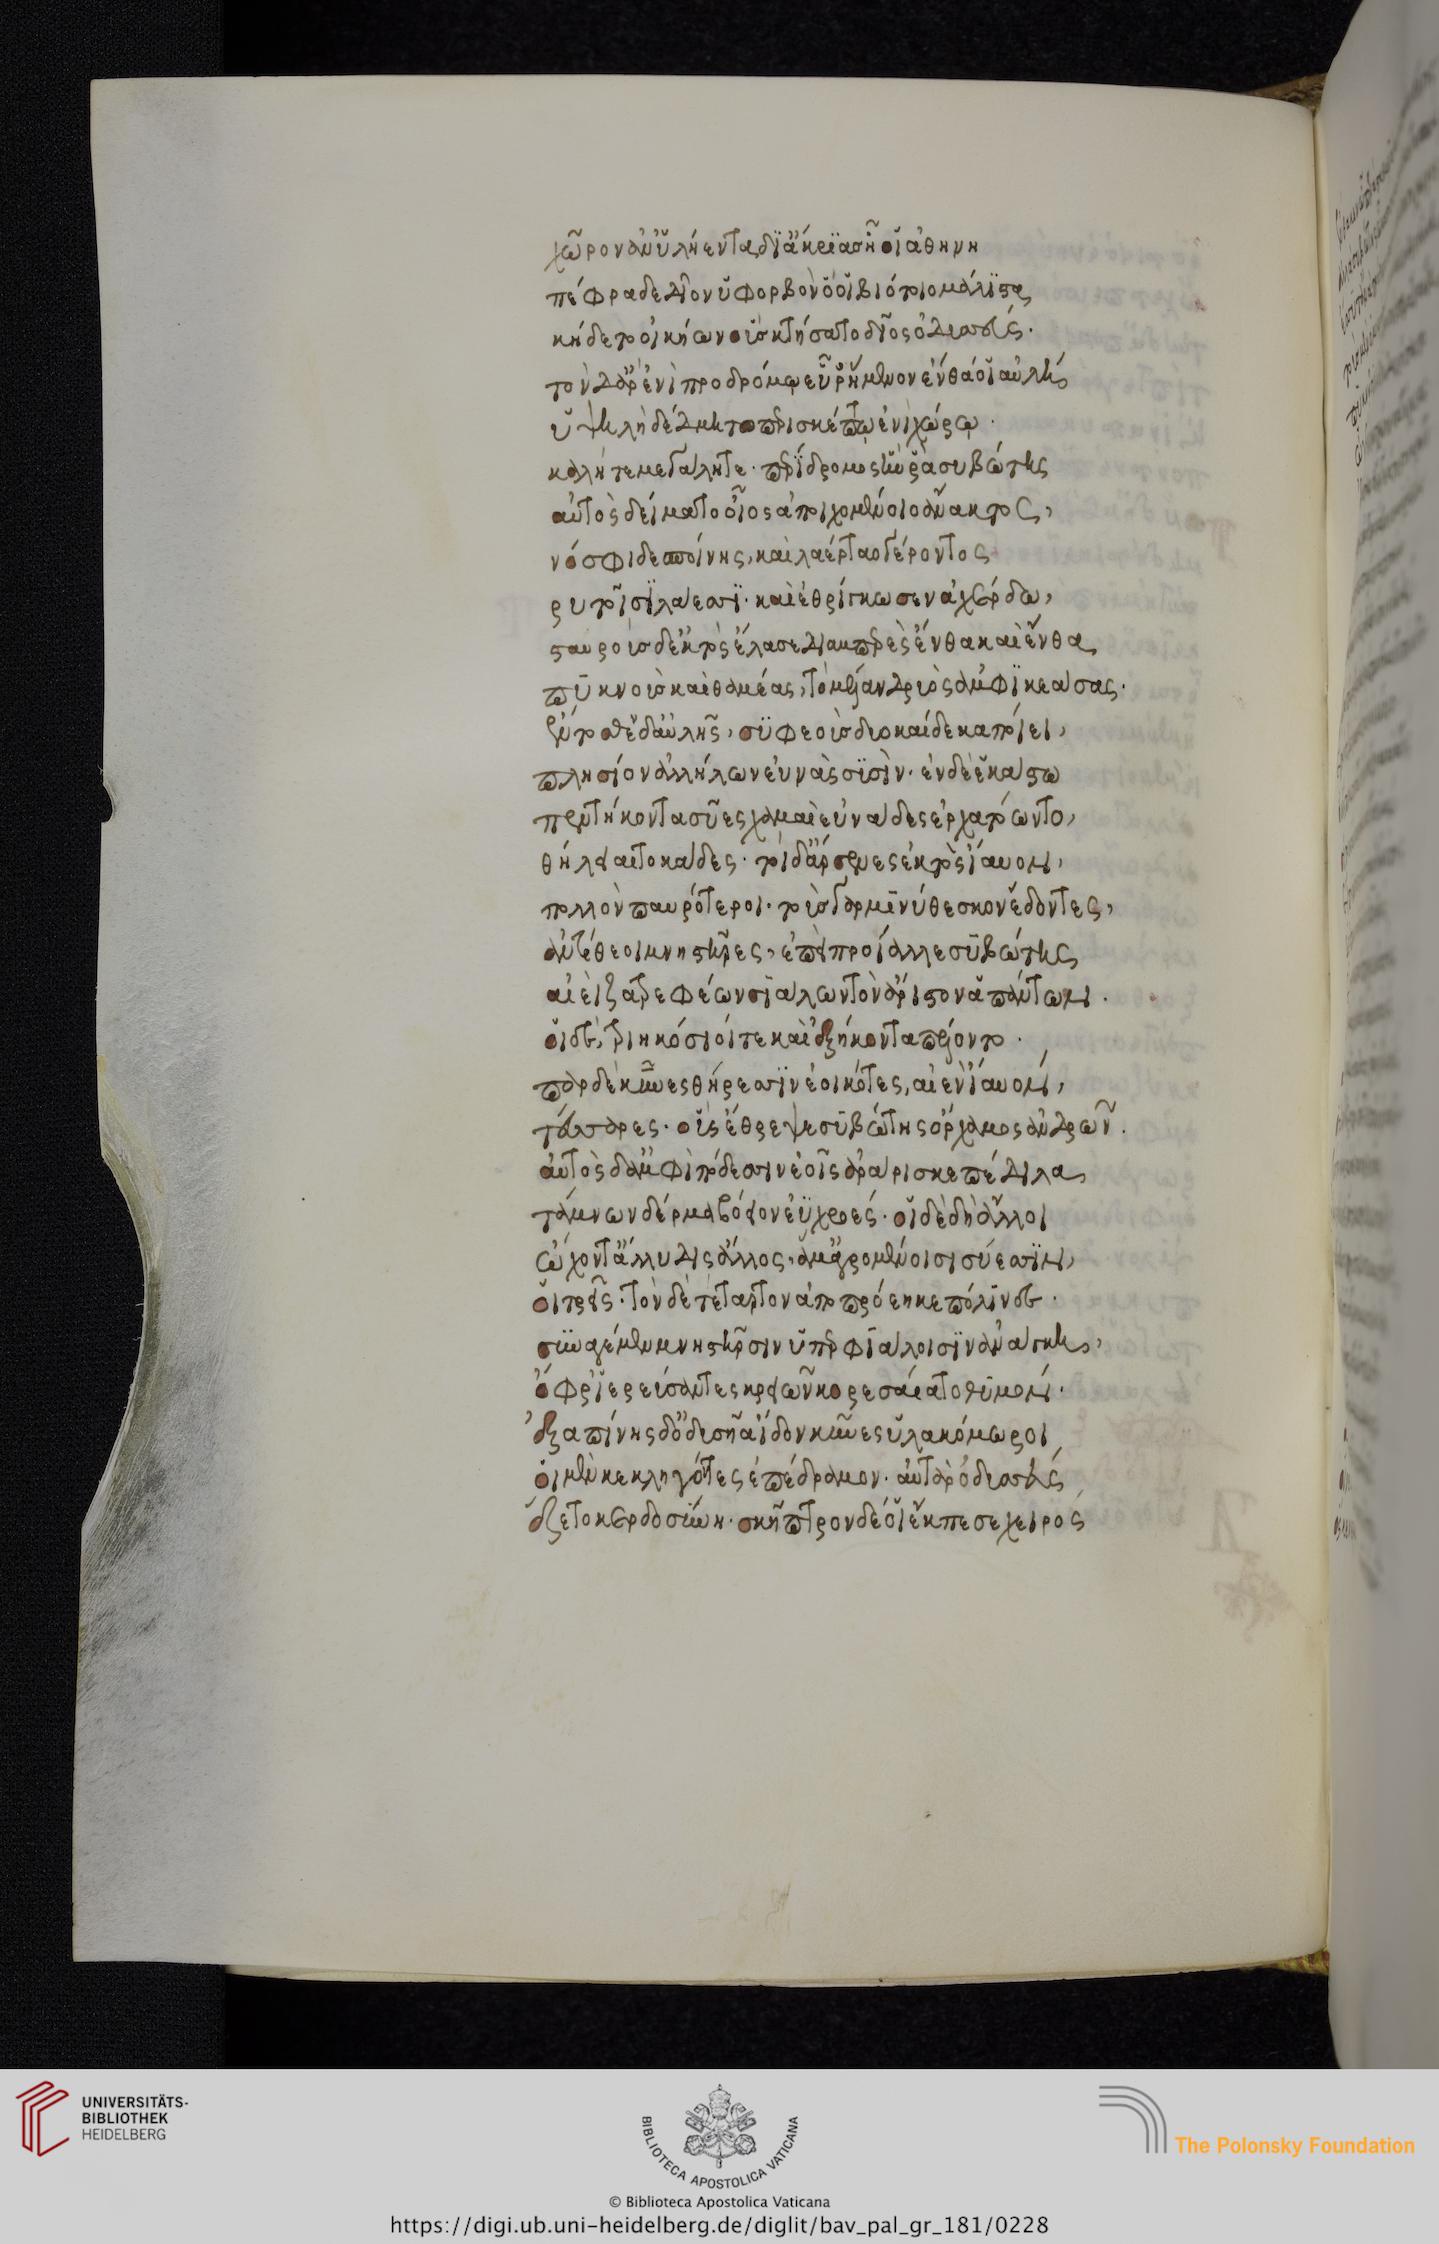 χῶρον ἀν' ὑλήεντα δι' ἄκριας ᾗ οἱ ἀθήνη
πέφραδε δῖον ὑφορβὸν ὅ οἱ βιότοιο μάλιστα
κήδετο οἰκήων οὓς κτήσατο δῖος ὀδυσσεύς.
τὸν δ' ἄρ' ἐνὶ προδρόμῳ εὗρ' ἥμενον ἔνθά οἱ αὐλὴ
ὑψηλὴ δέδμητο περισκέπτῳ ἐνὶ χώρῳ.
καλή τε μεγάλη τε. περίδρομος ἥν ῥα συβώτης
αὐτὸς δείμαθ' ὕεσσιν ἀποιχομένοιο ἄνακτος,
νόσφι δεσποίνης, καὶ λαέρταο γέροντος
ῥυτοῖσι λάεσσι. καὶ ἐθρίγκωσεν ἀχέρδῳ,
σταυροὺς δ' ἐκτὸς ἔλασε διαμπερὲς ἔνθα καὶ ἔνθα
πυκνοὺς καὶ θαμέας, τὸ μέλαν δρυὸς ἀμφικεάσας.
ἔντοσθεν δ' αὐλῆς, συφεοὺς δυοκαίδεκα ποίει,
πλησίον ἀλλήλων εὐνὰς συσίν. ἐν δὲ ἑκάστῳ
πεντήκοντα σύες χαμαιευνάδες ἐρχατόωντο,
θήλειαι τοκάδες. τοὶ δ' ἄρσενες ἐκτὸς ἴαυον,
πολλὸν παυρότεροι. τοὺς γὰρ μινύθεσκον ἔδοντες,
ἀντίθεοι μνηστῆρες, ἐπεὶ προΐαλλε συβώτης
αἰεὶ ζατρεφέων σιάλων τὸν ἄριστον ἁπάντων.
οἱ δὲ, τριηκόσιοί τε καὶ ἑξήκοντα πέλοντο.
πὰρ δὲ κύνες θήρεσσιν ἐοικότες, αἰὲν ἴαυον,
τέσσαρες. οὓς ἔθρεψε συβώτης ὄρχαμος ἀνδρῶν.
αὐτὸς δ' ἀμφὶ πόδεσσιν ἑοῖς ἀράρισκε πέδιλα
τάμνων δέρμα βόειον ἐϋχροές. οἱ δὲ δὴ ἄλλοι
ᾤχοντ' ἄλλυδις ἄλλος, ἅμ' ἀγρομένοισι σύεσσιν,
οἱ τρεῖς. τὸν δὲ τέταρτον ἀποπροέηκε πόλινδε.
σῦν ἀγέμεν μνηστῆρσιν ὑπερφιάλοισιν ἀνάγκῃ,
ὄφρ' ἱερεύσαντες κρειῶν κορεσαίατο θυμόν.
ἐξαπίνης δ' ὀδυσῆα ἴδον κύνες ὑλακόμωροι
οἱ μὲν κεκλήγοντες ἐπέδραμον. αὐτὰρ ὀδυσσεὺς
ἕζετο κερδοσύνῃ. σκῆπτρον δέ οἱ ἔκπεσε χειρός
UNIVERSITÄTS-
BIBLIOTHEK
HEIDELBERG
BIBLIOTECA APOSTOLICA VATICANA
The Polonsky Foundation
© Biblioteca Apostolica Vaticana
https://digi.ub.uni-heidelberg.de/diglit/bav_pal_gr_181/0228